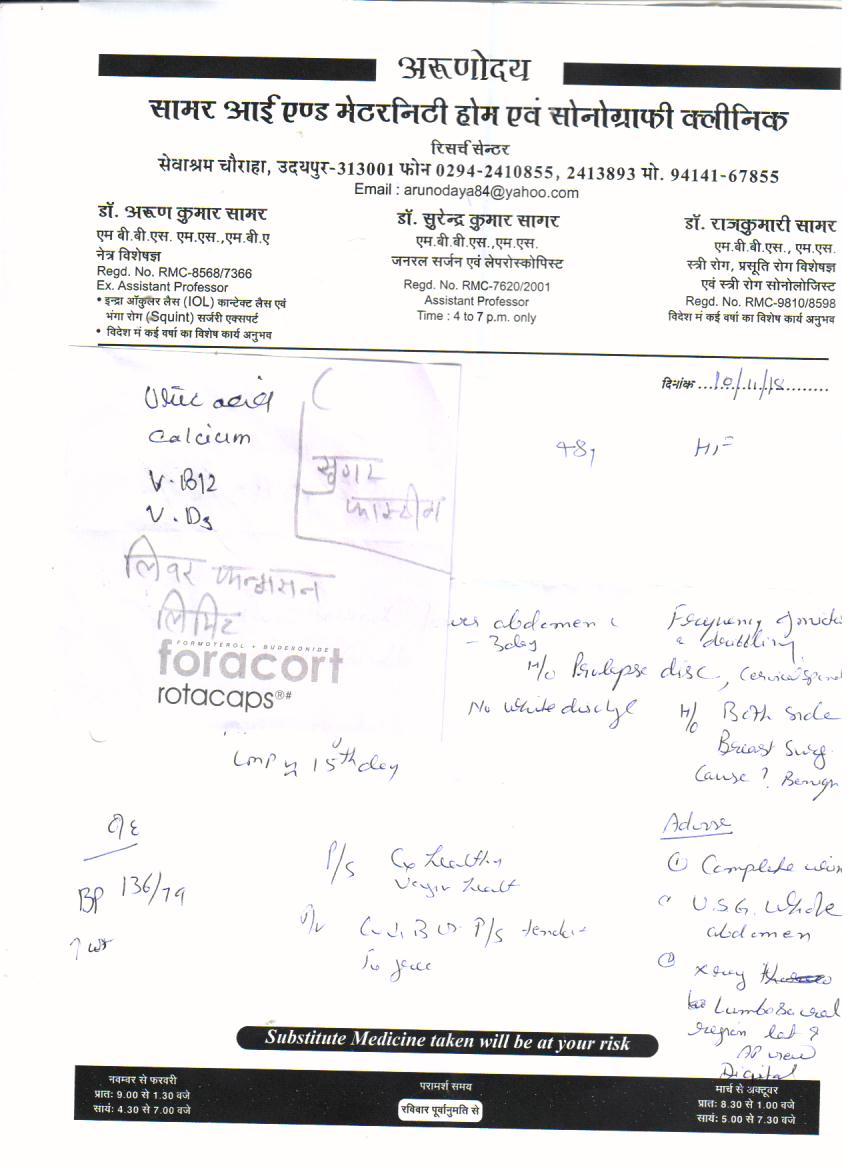 अरूणोदय
सामर आई एण्ड मेटरनिटी होम एवं सोनोग्राफी क्लीनिक
रिसर्च सेन्टर
सेवाश्रम चौराहा, उदयपुर-313001 फोन 0294-2410855, 2413893 मो. 94141-67855
Email : arunodaya84@yahoo.com
डॉ. अरूण कुमार सामर
एम बी.बी.एस. एम.एस.,एम.बी.ए
नेत्र विशेषज्ञ
Regd. No. RMC-8568/7366
Ex. Assistant Professor
• इन्द्रा ऑकुलर लैस (IOL) कान्टेक्ट लैस एवं
भंगा रोग (Squint) सर्जरी एक्सपर्ट
• विदेश में कई वर्षा का विशेष कार्य अनुभव
डॉ. सुरेन्द्र कुमार सागर
एम.बी.बी.एस.,एम.एस.
जनरल सर्जन एवं लेपरोस्कोपिस्ट
Regd. No. RMC-7620/2001
Assistant Professor
Time : 4 to 7 p.m. only
डॉ. राजकुमारी सामर
एम.बी.बी.एस., एम.एस.
स्त्री रोग, प्रसूति रोग विशेषज्ञ
एवं स्त्री रोग सोनोलोजिस्ट
Regd. No. RMC-9810/8598
विदेश मं कई वर्षा का विशेष कार्य अनुभव
दिनांक ...10/11/18........
Uric acid
Calcium
V.B12
V.D3
सुगर
फास्टीग
लिवर फन्कसन
लिमिट
FORMOTEROL + BUDESONIDE
foracort
rotacaps®#
abdomen
Frequency
- 3day
& dribbling
H/o Prolapse disc,
No white
H/o Both side
Breast Surg.
Cause ? Benign
LMP 15th day
O/E
BP 136/79
↑ wt
P/S Cx healthy
P/V
Advise
① Complete
U.S.G. Whole
abdomen
xray
Lumbosacral
region lat &
AP view
Digital
Substitute Medicine taken will be at your risk
नवम्बर से फरवरी
प्रातः 9.00 से 1.30 बजे
सायंः 4.30 से 7.00 बजे
परामर्श समय
रविवार पूर्वानुमति से
मार्च से अक्टूबर
प्रातः 8.30 से 1.00 बजे
सायंः 5.00 से 7.30 बजे